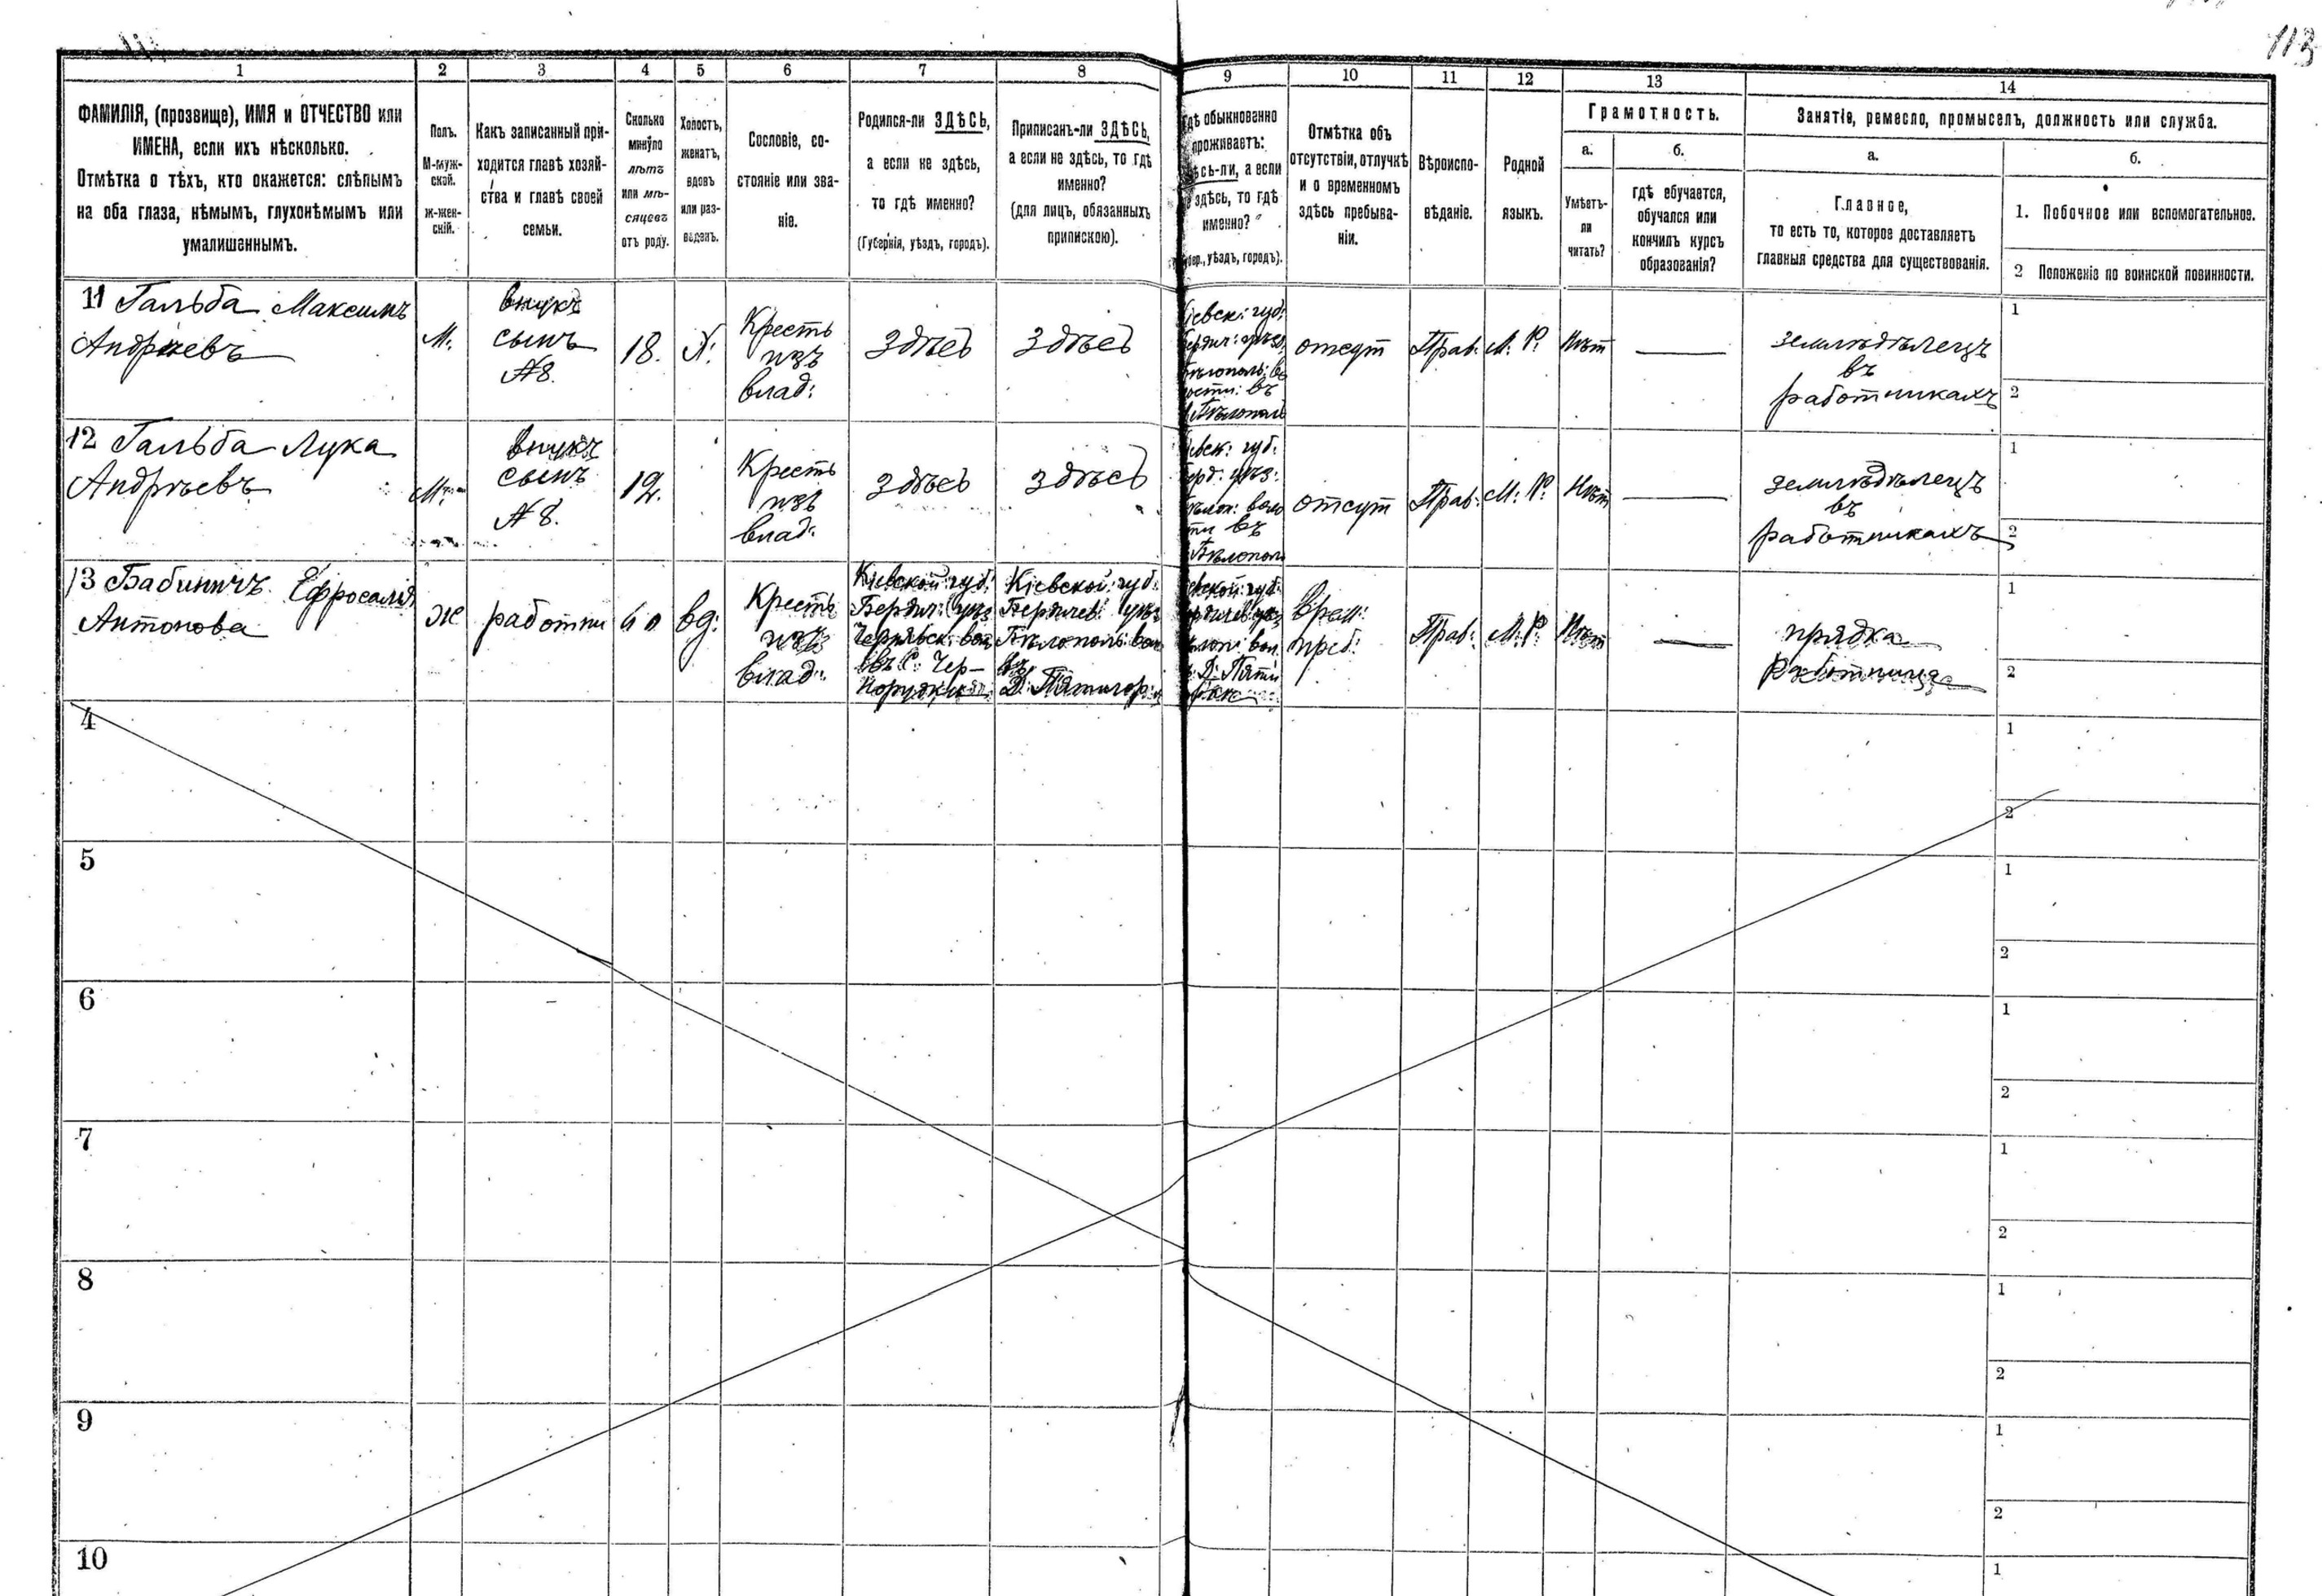 113
1 2 3 4 5 6 7 8 9 10 11 12 13 14
ФАМИЛІЯ, (прозвище), ИМЯ и ОТЧЕСТВО или
ИМЕНА, если ихъ нѣсколько.
Отмѣтка о тѣхъ, кто окажется: слѣпымъ
на оба глаза, нѣмымъ, глухонѣмымъ или
умалишеннымъ.
Полъ.
М-муж-
ской.
ж-жен-
скій.
Какъ записанный при-
ходится главѣ хозяй-
ства и главѣ своей
семьи.
Сколько
минуло
лѣтъ
или мѣ-
сяцевъ
отъ роду.
Холостъ,
женатъ,
вдовъ
или раз-
веденъ.
Сословіе, со-
стояніе или зва-
ніе.
Родился-ли ЗДѢСЬ,
а если не здѣсь,
то гдѣ именно?
(Губернія, уѣздъ, городъ).
Приписанъ-ли ЗДѢСЬ,
а если не здѣсь, то гдѣ
именно?
(для лицъ, обязанныхъ
припискою).
гдѣ обыкновенно
проживаетъ:
сь-ли, а если
здѣсь, то гдѣ
именно?
уѣздъ, городъ).
Отмѣтка объ
отсутствіи, отлучкѣ
и о временномъ
здѣсь пребыва-
ніи.
Вѣроиспо-
вѣданіе.
Родной
языкъ.
Грамотность.
а.
Умѣетъ-
ли
читать?
б.
гдѣ обучается,
обучался или
кончилъ курсъ
образованія?
Занятіе, ремесло, промыселъ, должность или служба.
а.
Главное,
то есть то, которое доставляетъ
главныя средства для существованія.
б.
1. Побочное или вспомогательное.
2 Положеніе по воинской повинности.
11 Гальба Максимъ
Андреевъ
М.
внукъ
сынъ
№8.
18.
Х.
Кресть
изъ
влад:
Здѣсь
Здѣсь
іевск: губ:
въ
отсут
Прав:
М: Р:
Нѣт
земледѣлецъ
въ
работникахъ
1
2
12 Гальба Лука
Андрѣевъ
М.
внукъ
сынъ
№ 8.
12.
Кресть
изъ
влад:
Здѣсь
Здѣсь
іевск: губ.
въ
отсут
Прав:
М: Р:
Нѣт
земледѣлецъ
въ
работникахъ
1
2
13 Бабиничъ Ефросинія
Антонова
Ж
работни
60
вд:
Кресть
изъ
влад:
Кіевской губ:
Бердич: уѣз
въ С: Чер-
Кіевской: губ:
Бердичев: уѣз
Бѣлополь: вол
въ
Д: Пятигор:
Врем:
преб:
Прав:
М: Р:
Нѣт
прядка
работница
1
2
4
1
2
5
1
2
6
1
2
7
1
2
8
1
2
9
1
2
10
1